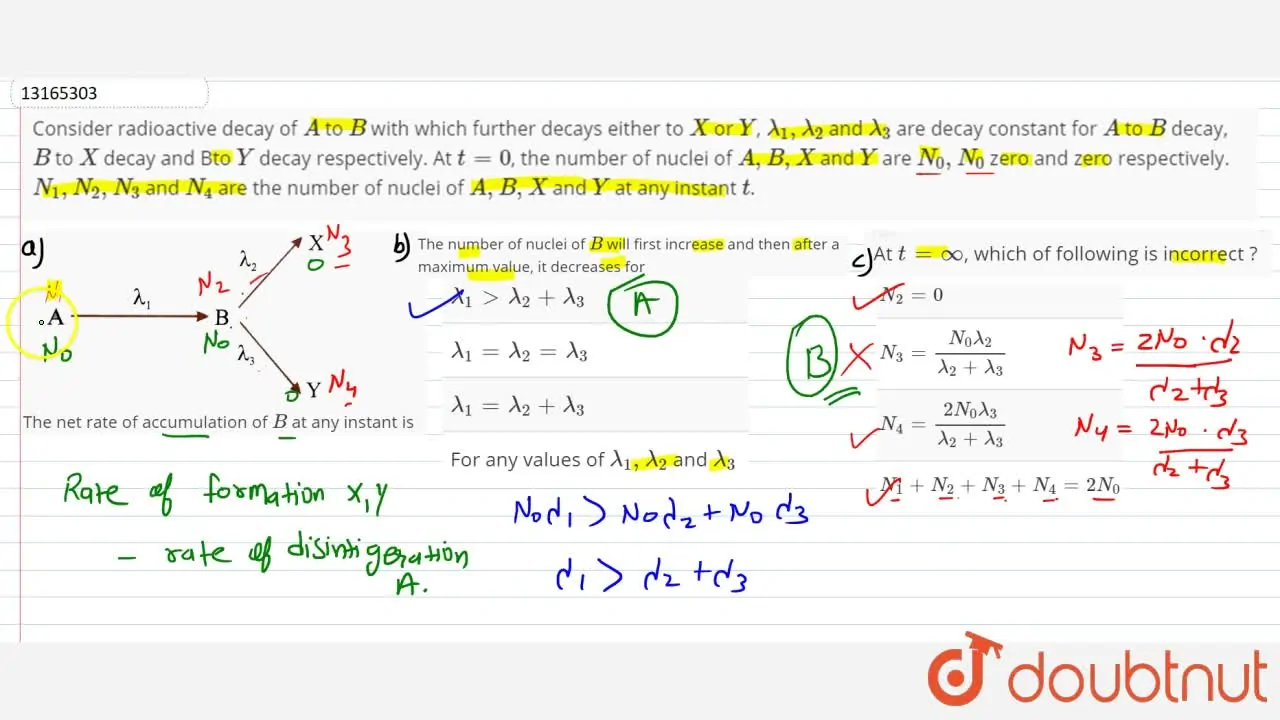 13165303
Consider radioactive decay of A to B with which further decays either to X or Y, λ₁, λ₂ and λ₃ are decay constant for A to B decay,
B to X decay and Bto Y decay respectively. At t = 0, the number of nuclei of A, B, X and Y are N₀, N₀ zero and zero respectively.
N₁, N₂, N₃ and N₄ are the number of nuclei of A, B, X and Y at any instant t.
a)
X N₃
0
λ₂
N₂
N₁
A
N₀
λ₁
B
N₀
λ₃
0 Y N₄
The net rate of accumulation of B at any instant is
Rate of formation X,Y
- rate of disintigeration
A.
b) The number of nuclei of B will first increase and then after a
maximum value, it decreases for
λ₁ > λ₂ + λ₃
A
λ₁ = λ₂ = λ₃
λ₁ = λ₂ + λ₃
For any values of λ₁, λ₂ and λ₃
N₀λ₁ > N₀λ₂ + N₀λ₃
λ₁ > λ₂ + λ₃
c) At t = ∞, which of following is incorrect ?
N₂ = 0
B
N₃ = N₀λ₂ / λ₂ + λ₃
N₃ = 2N₀ · λ₂ / λ₂ + λ₃
N₄ = 2N₀λ₃ / λ₂ + λ₃
N₄ = 2N₀ · λ₃ / λ₂ + λ₃
N₁ + N₂ + N₃ + N₄ = 2N₀
doubtnut